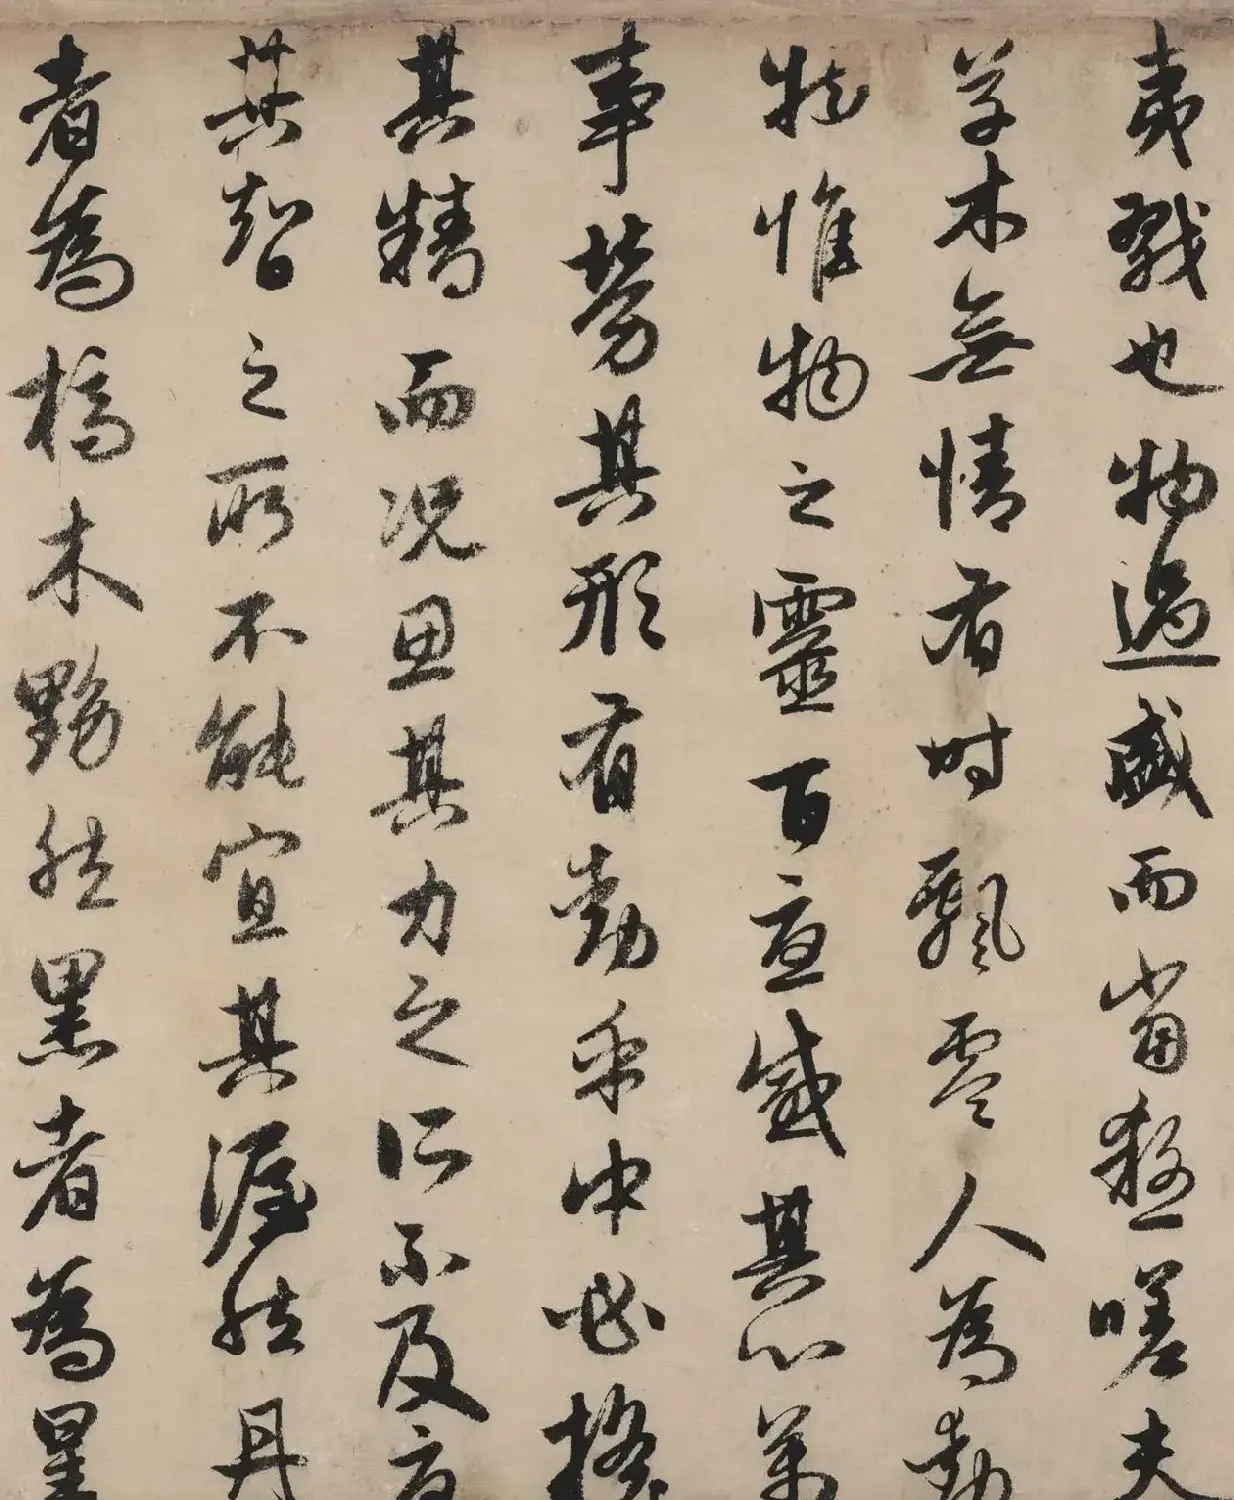 夷戮也物過盛而當殺嗟夫
草木無情有時飄零人為動
物惟物之靈百憂感其心萬
事勞其形有動乎中必搖
其精而況思其力之所不及憂
其智之所不能宜其渥然丹
者為槁木黟然黑者為星